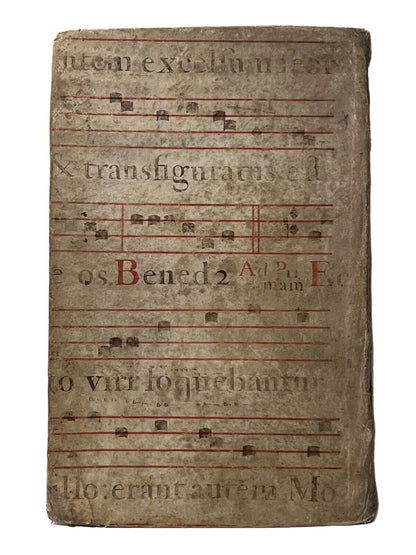 ntem excelſum ſeor
& transfiguratus eſt
e os. Bened 2 Ad Pri Ec
mam
uo viri loquebantur
illo: erant autem Mo